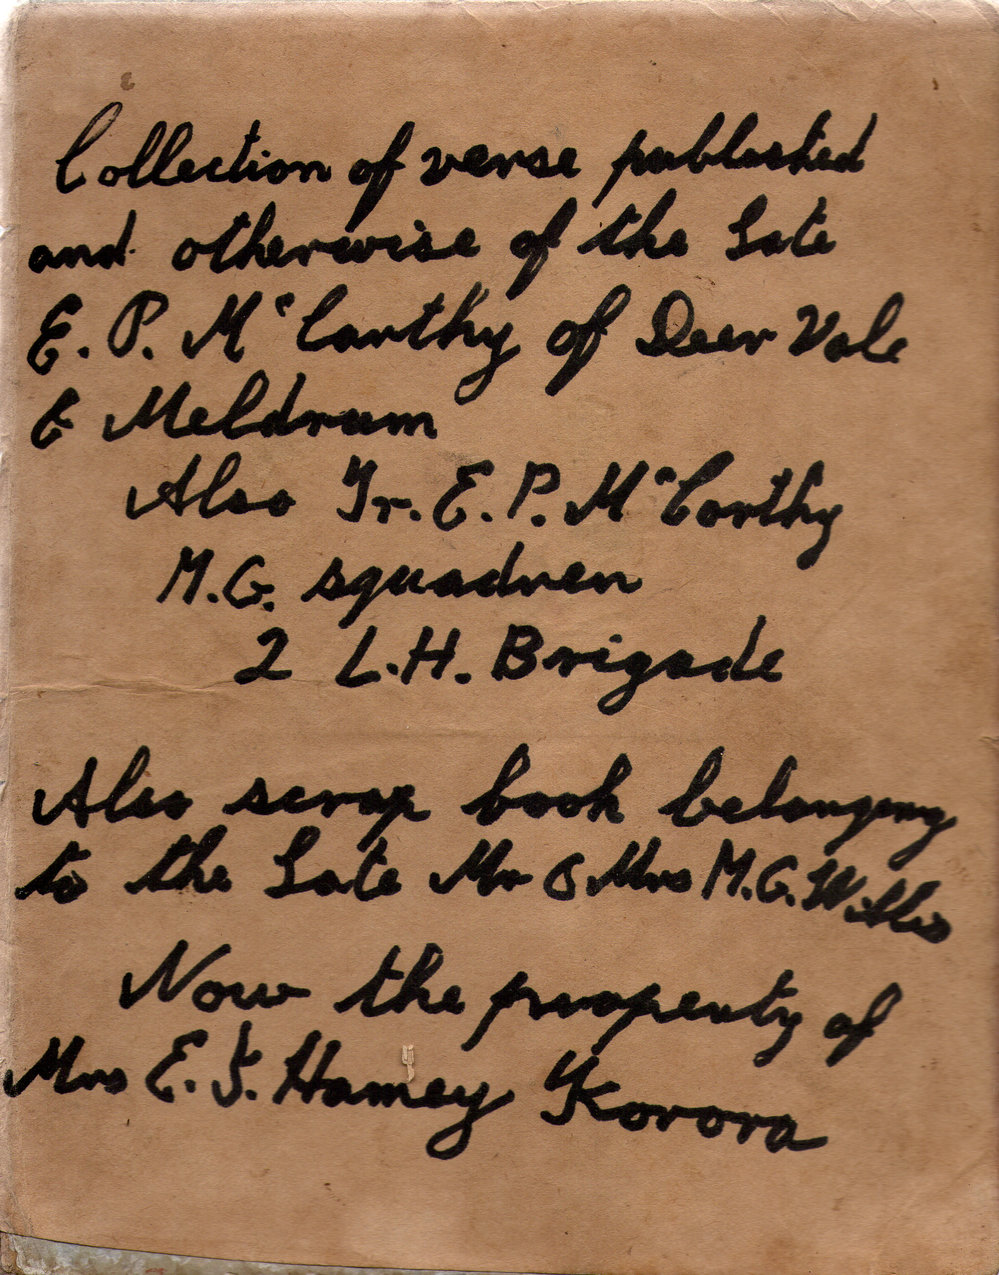 Collection of verse published
and otherwise of the Late
E. P. McCarthy of Deer Vale
E Meldrum
Also Tr. E. P. McCarthy
M.G. squadren
2 L.H. Brigade
Also scrap book belonging
to the Late Mr & Mrs M.G. Willis
Now the property of
Mrs E. J. Hamey Korora